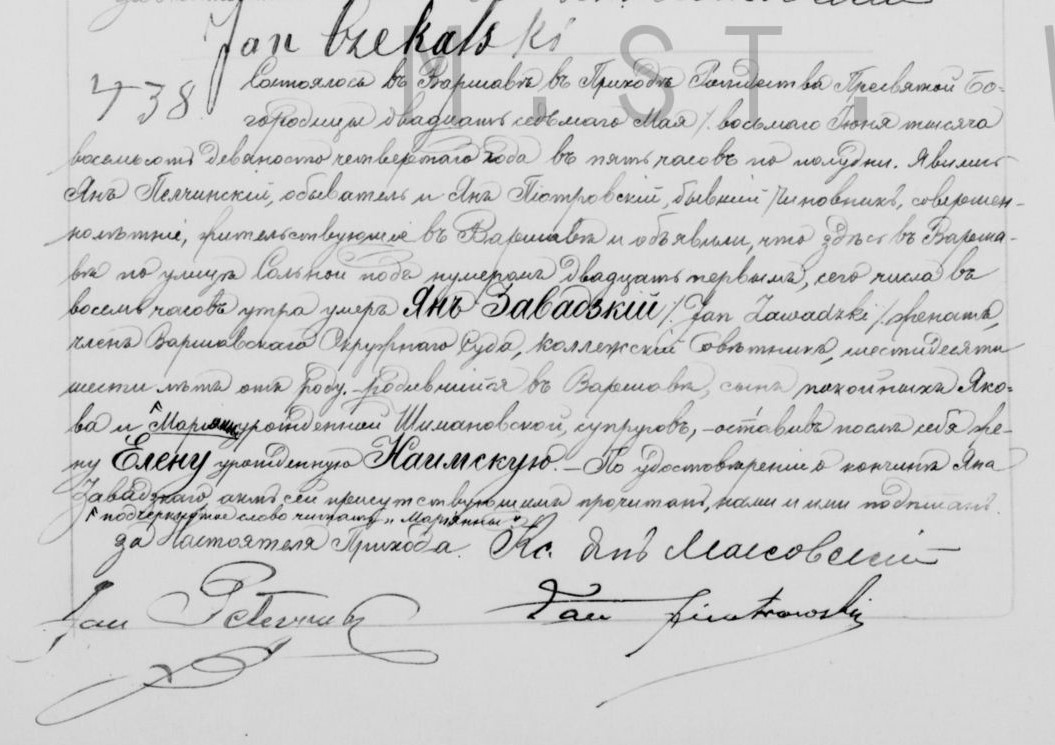 Jan Czekalski
738.
Состоялось въ Варшавѣ въ Приходѣ Рождества Пресвятой Бо-
городицы двадцать седьмаго Мая /. восьмаго Іюня тысяча
восемьсотъ девяносто четвертаго года въ пять часовъ по полудни. Явились
Янъ Пелчинскій, обыватель и Янъ Піотровскій, бывшій чиновникъ, совершен-
нолѣтніе, жительствующіе въ Варшавѣ и объявили, что здѣсь въ Варша-
вѣ по улицѣ Сольной подъ нумеромъ двадцать первымъ, сего числа въ
восемь часовъ утра умеръ Янъ Завадзкій /. Jan Zawadzki /. женатъ,
членъ Варшавскаго Окружнаго Суда, Коллежскій Совѣтникъ, шестидесяти
шести лѣтъ отъ роду, родившійся въ Варшавѣ, сынъ покойныхъ Яко-
ва и Маріанны урожденной Шимановской, супруговъ, оставивъ послѣ себя же-
ну Елену урожденную Наимскую. – По удостовѣреніи о кончинѣ Яна
Завадзкаго, актъ сей присутствующимъ прочитанъ, нами и ими подписанъ.
подчеркнутое слово читать „Маріанны"
За Настоятеля Прихода. Кс. Янъ
Jan Jan Piotrowski
M. ST. W